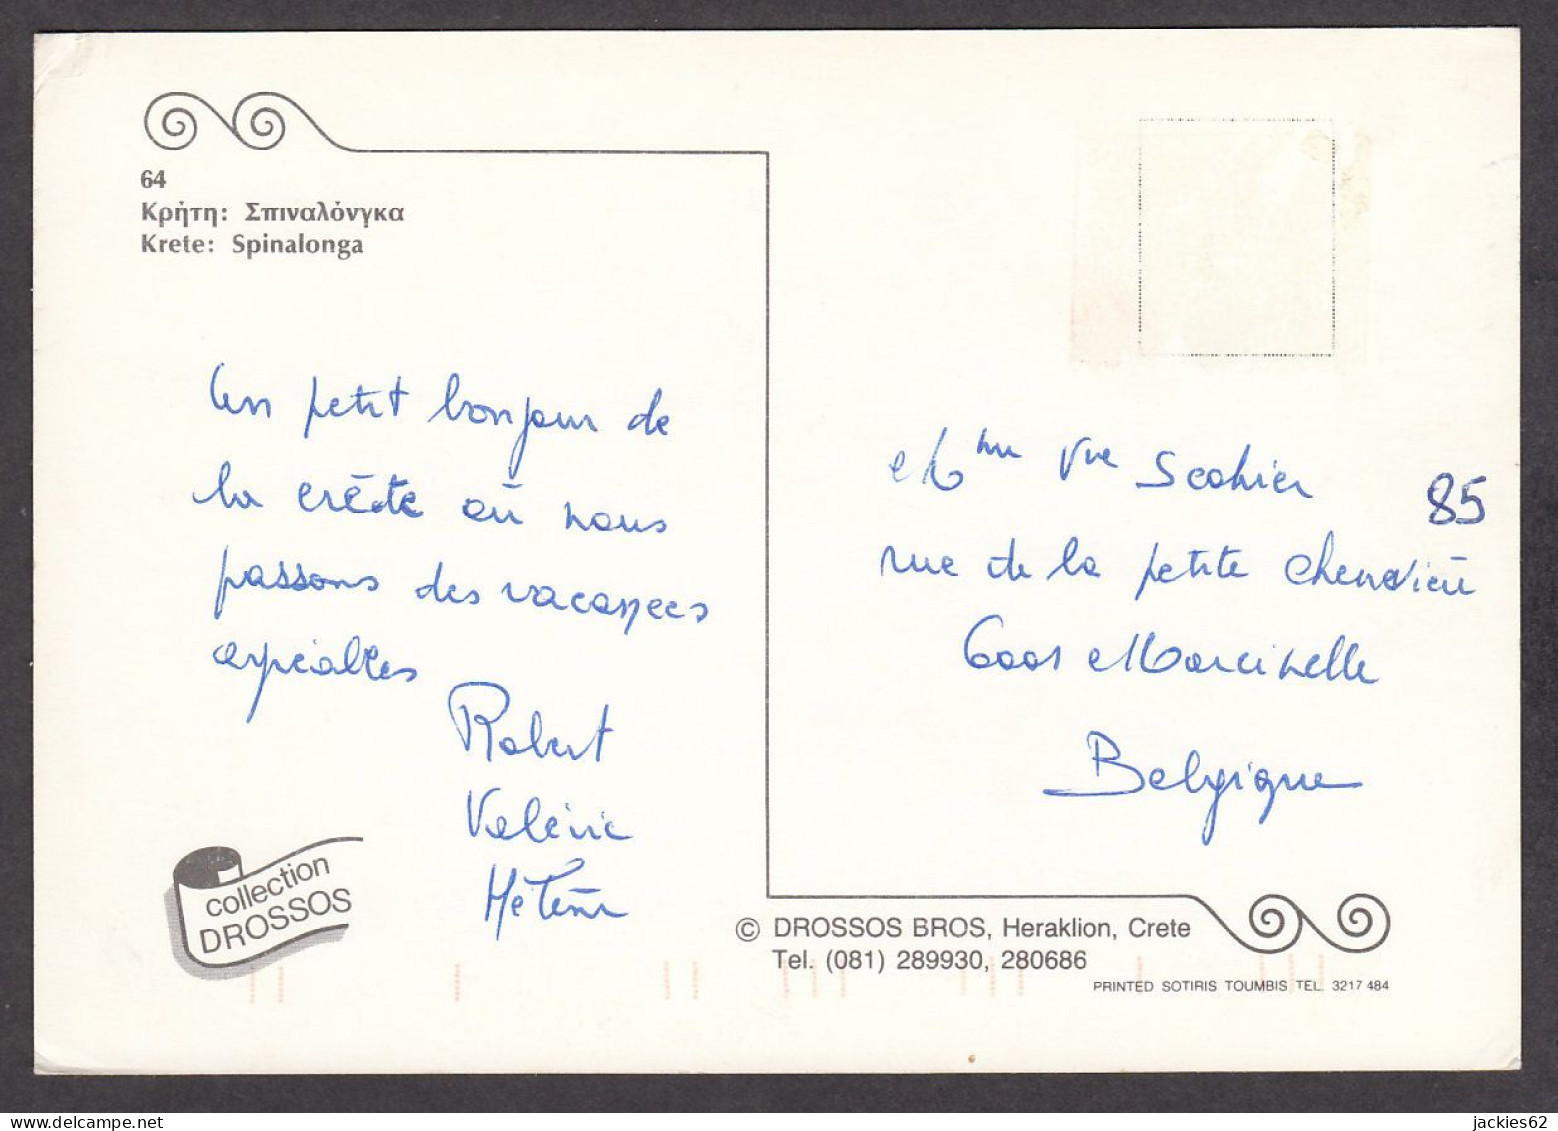 64
Κρήτη: Σπιναλόνγκα
Krete: Spinalonga
Un petit bonjour de
la crète où nous
passons des vacances
agréables
Robert
Valérie
Hélène
Mme Vve Scohier
85
rue de la petite
6001 Marcinelle
Belgique
collection
DROSSOS
© DROSSOS BROS, Heraklion, Crete
Tel. (081) 289930, 280686
PRINTED SOTIRIS TOUMBIS TEL. 3217 484
www.delcampe.net
jackies62